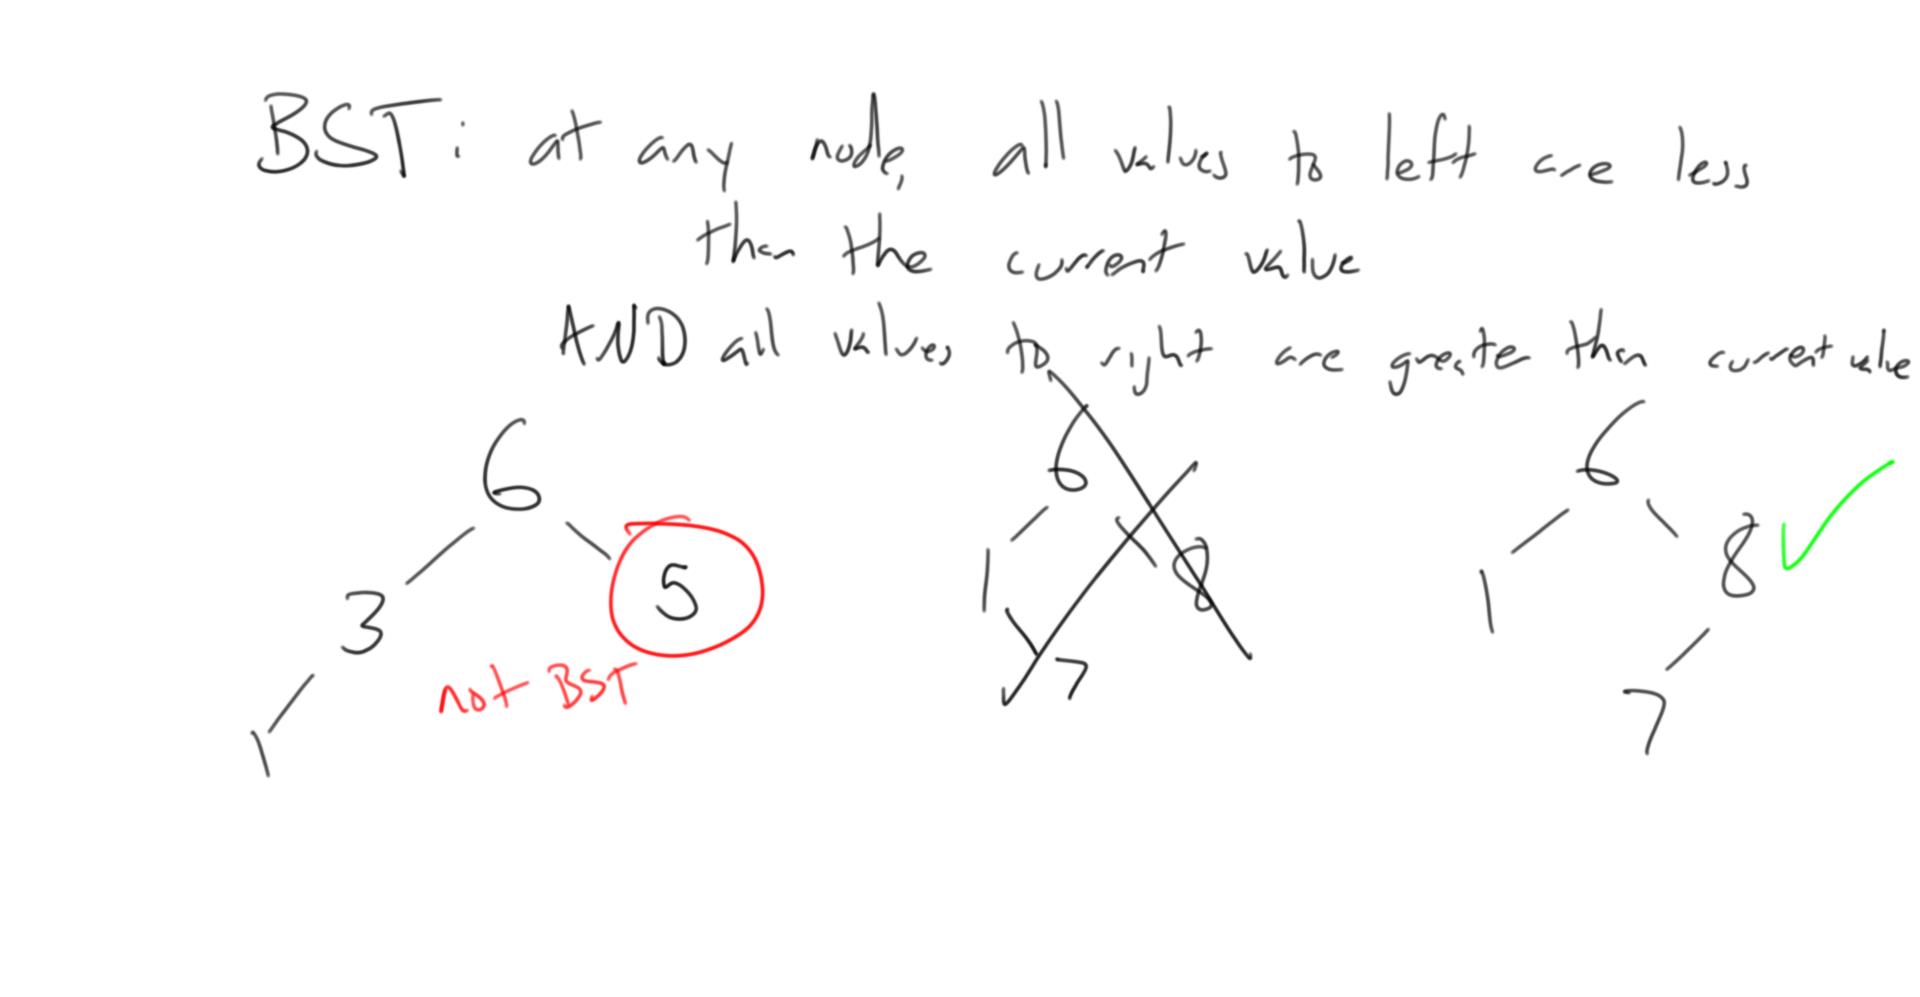 BST: at any node, all values to left are less
than the current value
AND all values to right are greater than current value
6 6 6
3 5 1 8 1 8
not BST
1 7 7